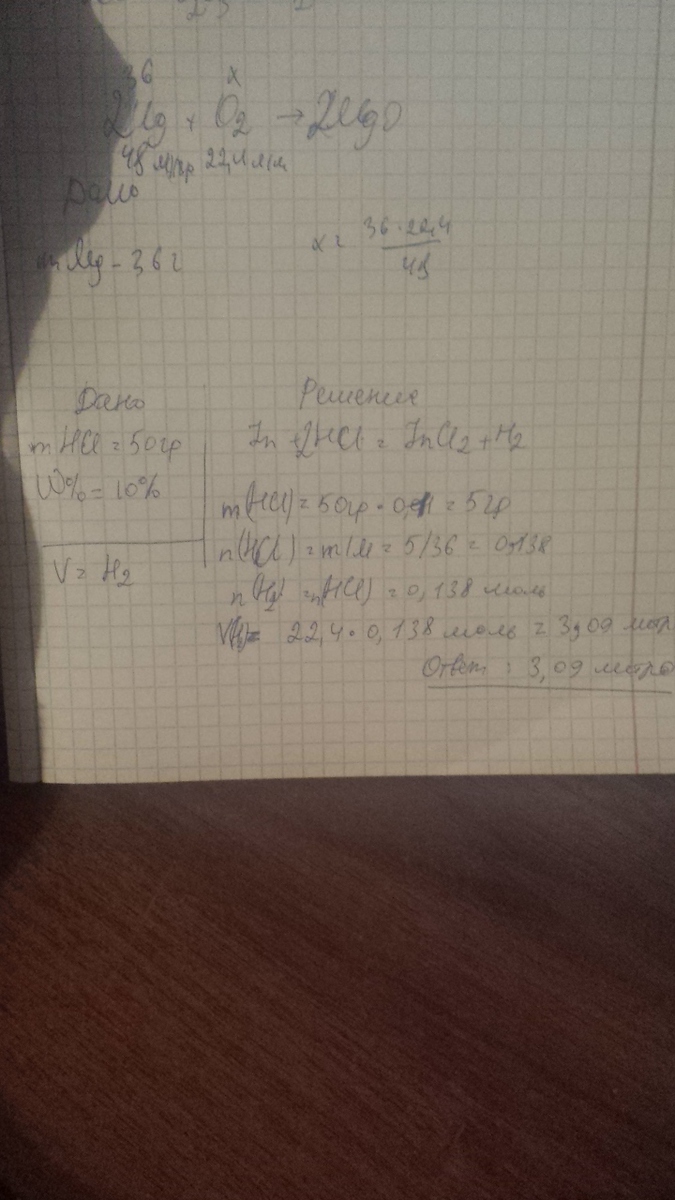 36 x
2Mg + O2 → 2MgO
48 22,4
Дано
m Mg - 36 г
x = 36·22,4
48
Дано
mHCl = 50гр
W% = 10%
V = H2
Решение
Zn + 2HCl = ZnCl2 + H2
m(HCl) = 50гр · 0,1 = 5гр
n(HCl) = m/M = 5/36 = 0,138
n(H2) = n(HCl) = 0,138 моль
V(H2) = 22,4 · 0,138 моль = 3,09 литр
Ответ : 3,09 литра